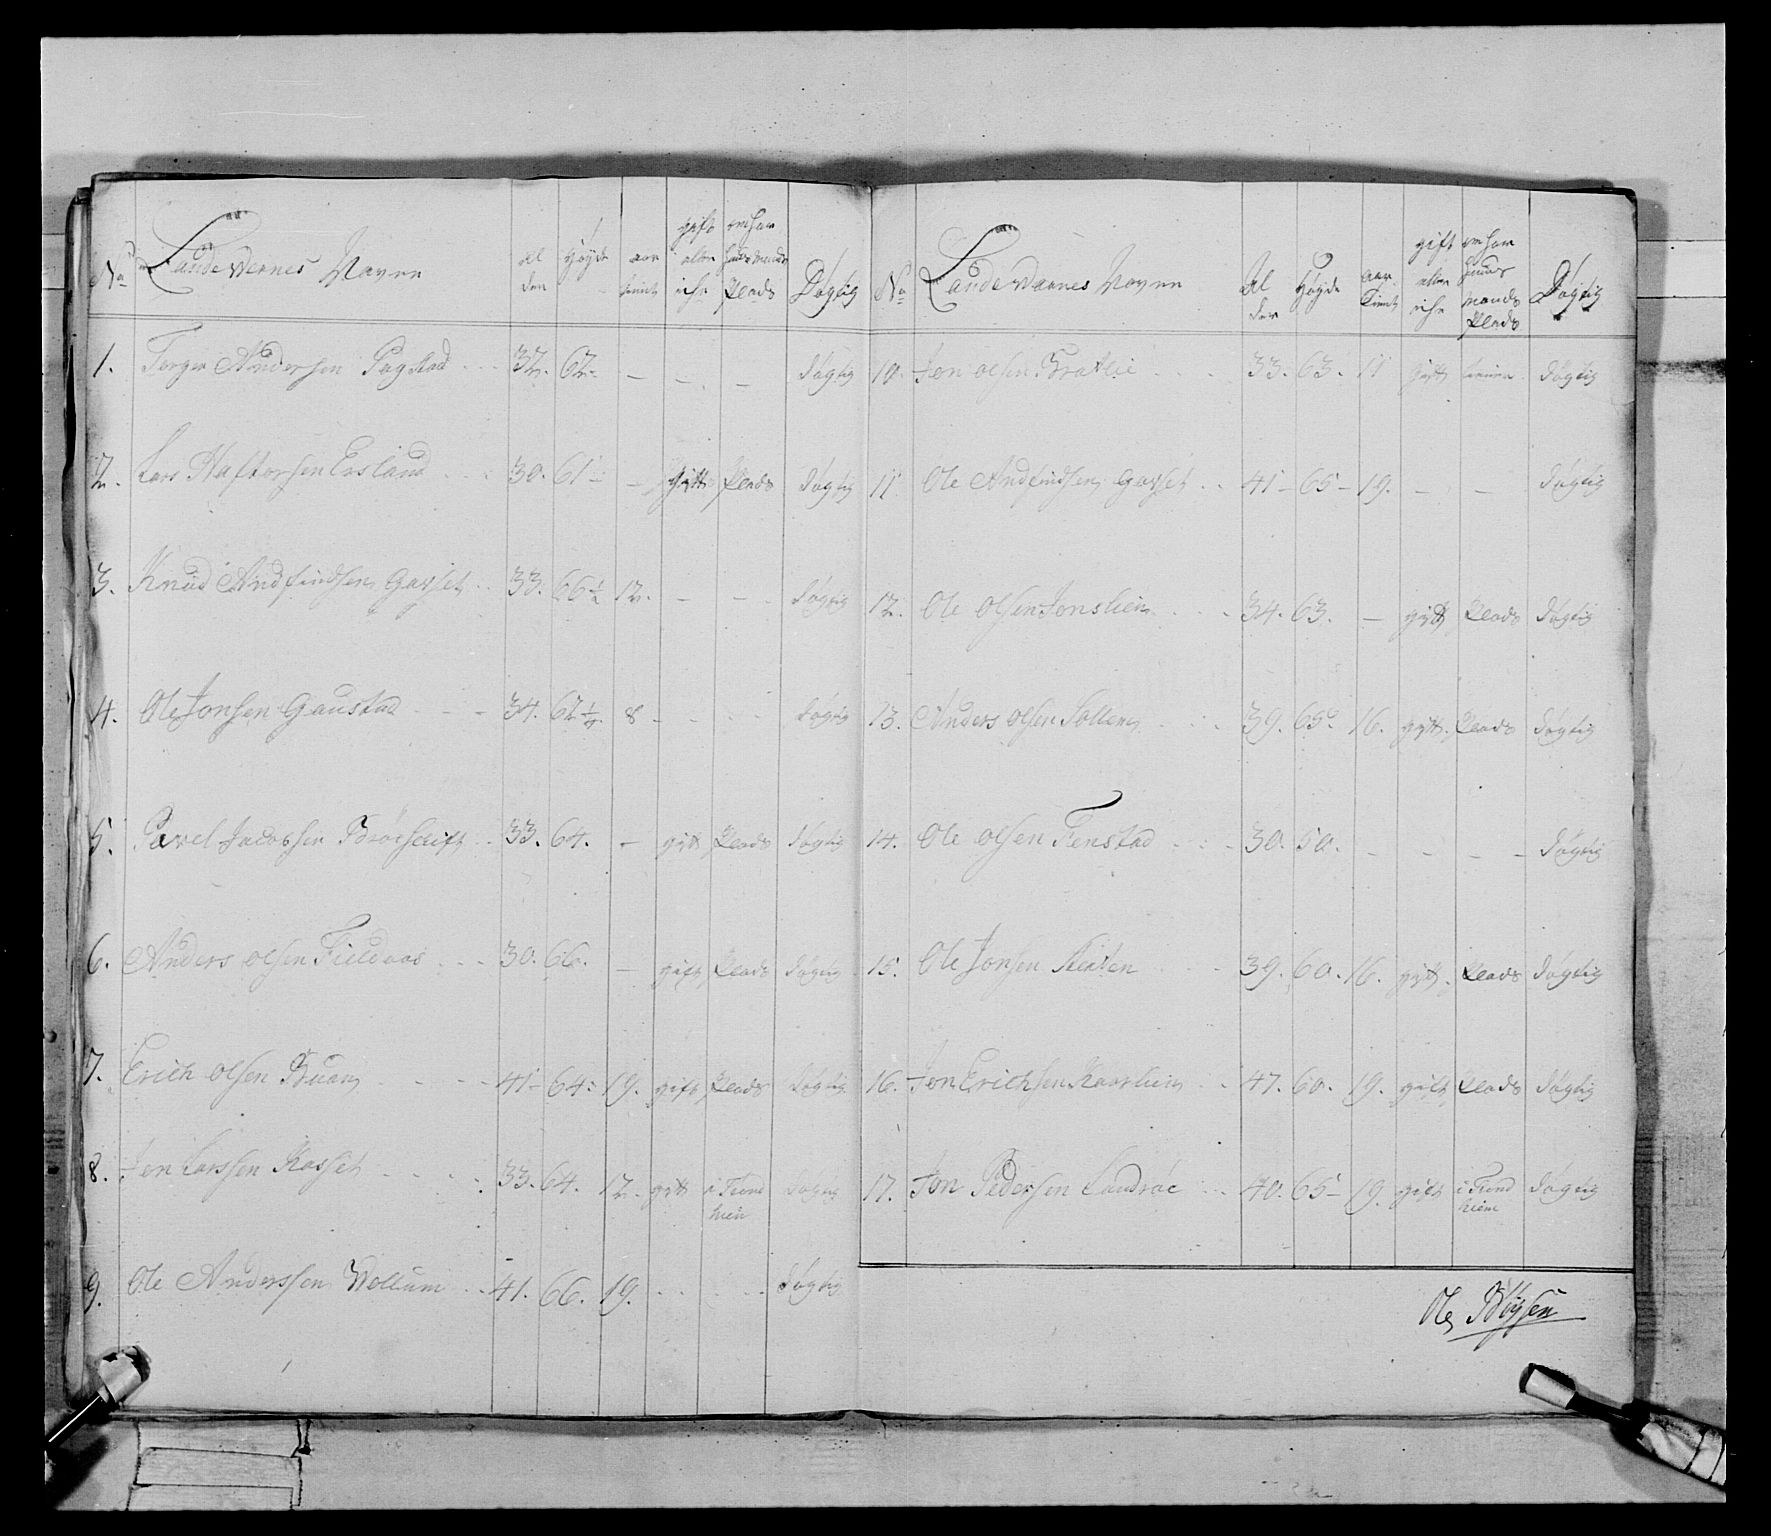 No Landewernes Navne Al der Høyde aar tient gift eller ikke om har Huusmands Plads Døgtig
1. Torger Andersen Pagstad 32. 62. - - - døgtig
2. Lars Haftorsen Ersland 30. 61 - - gift Plads døgtig
3. Knud Andfindsen Gasset 33. 66½ 12. - - døgtig
4. Ole Jonsen Gaustad 34. 62½ 8 - - - døgtig
5. Pavel Jacobsen 33. 64. - gift Plads døgtig
6. Anders Olsen Fieldaas 30. 66. - gift Plads døgtig
7. Erich Olsen Buan 41 - 64 - 19. gift Plads døgtig
8. Jon Larssen Kasset 33. 64. 12. gift i Trond hiem døgtig
9. Ole Anderssen Wollum 41. 66. 19. - - døgtig
No Landewærnes Navne Al der Høyde aar tient gift eller ikke om har Huusmands Plads Døgtig
10. Jon Olsen Bratlie 33. 63. 11 gift døgtig
11 Ole Andfindsen Gasset 41 - 65 - 19. - - døgtig
12. Ole Olsen Jonslien 34. 63. - gift Plads døgtig
13. Anders Olsen Sollem 39. 65. 16. gift. Plads døgtig
14. Ole Olsen Fenstad 30. 50. - - - - døgtig
15. Ole Jonsen 39. 60. 16. gift. Plads døgtig
16. Jon Erichsen Kaaslien 47. 60. 19. gift Plads døgtig
17. Jon Pedersen Landrøe 40. 65 - 19. gift i Trond hiem døgtig
Ole Bøysen